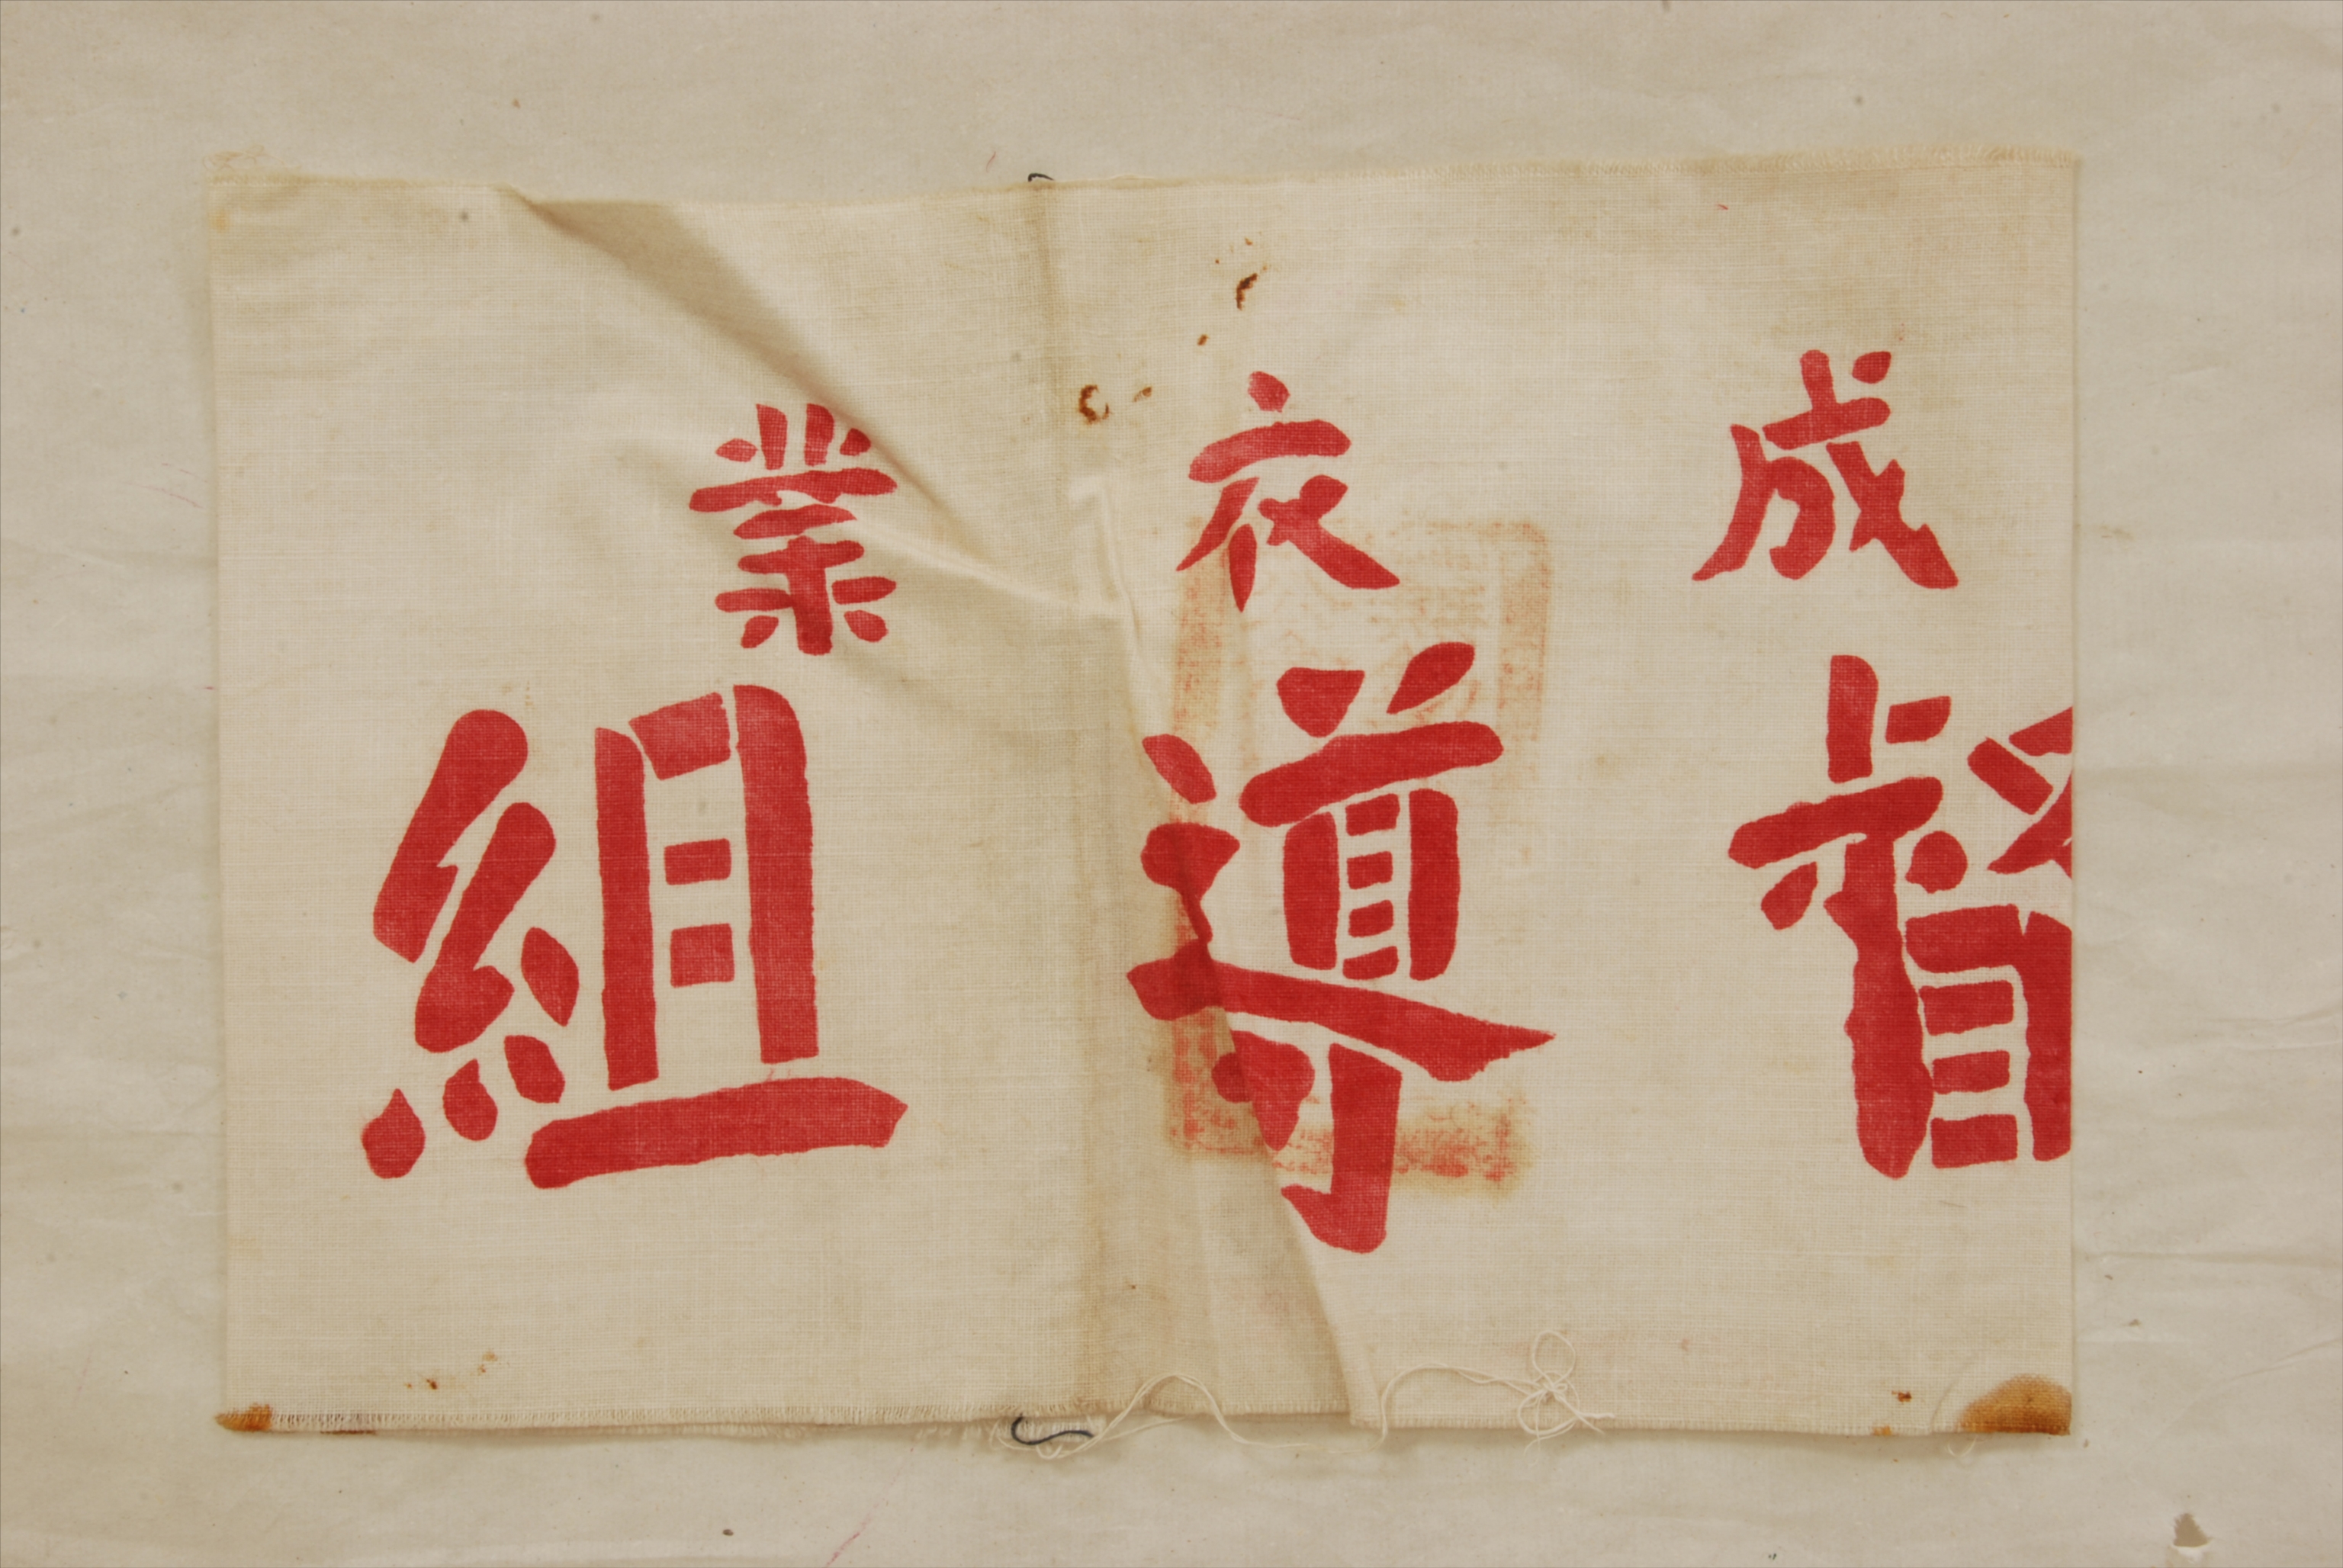 成衣業
督導組